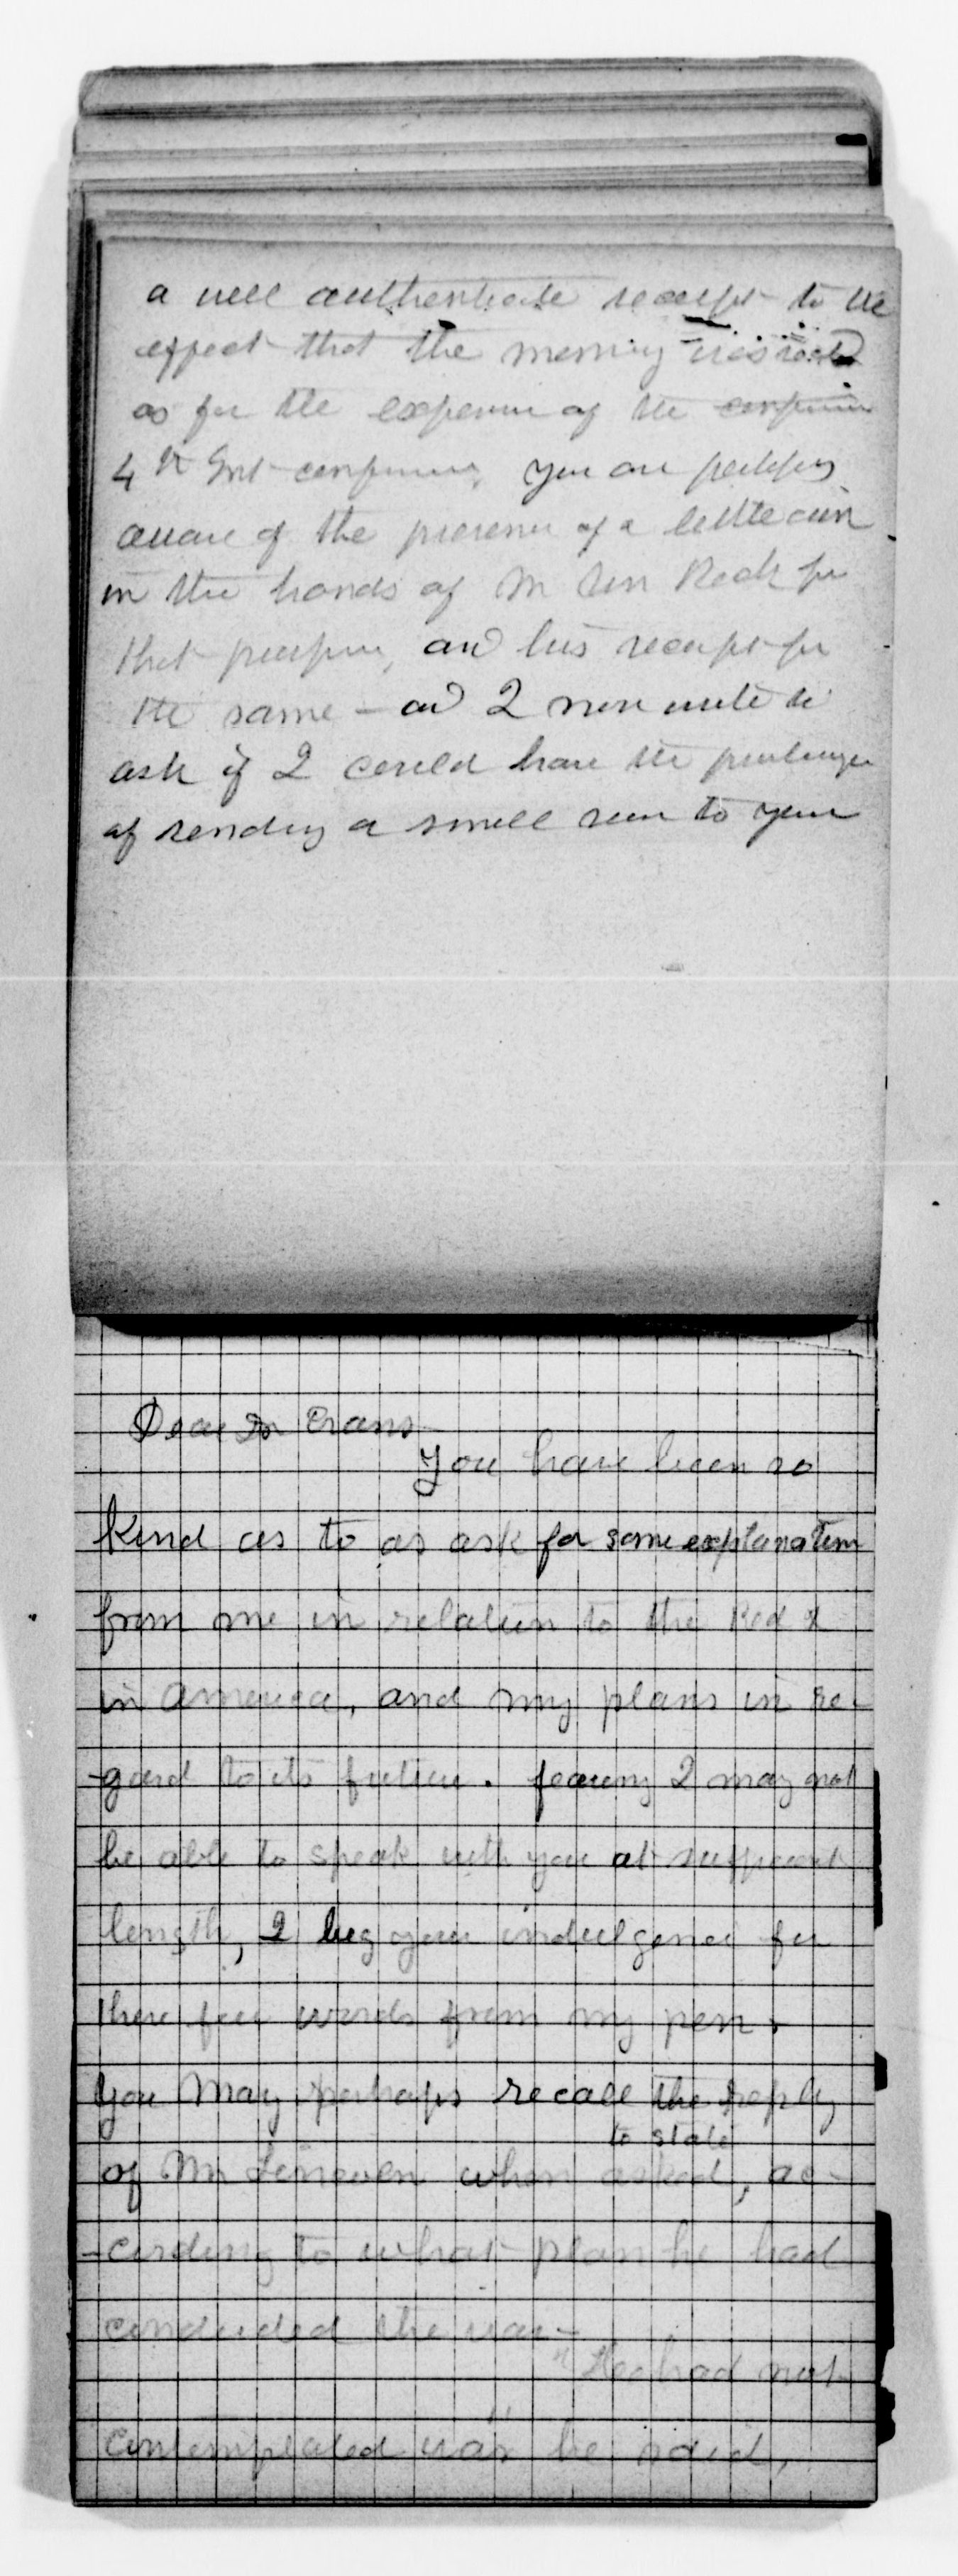 a well authenticate receipt to the
effect that the money was
as for the expense of the
4th Int conference, you are perhaps
aware of the presence of a little coin
in the hands of Mr for
that purpose, and his receipt for
the same – and I now write to
ask if I could have the privilege
of sending a small sum to your
Dear Dr Evans
You have been so
kind as to as ask for some explanation
from me in relation to the Red X
in America, and my plans in re-
-gard to its future. fearing I may not
be able to speak with you at sufficient
length, I beg your indulgence for
these few words from my pen.
You may perhaps recall the reply
to state
of Mr Lincoln when asked, ac-
-cording to what plan he had
conducted the war –
"He had not
contemplated war" he said,